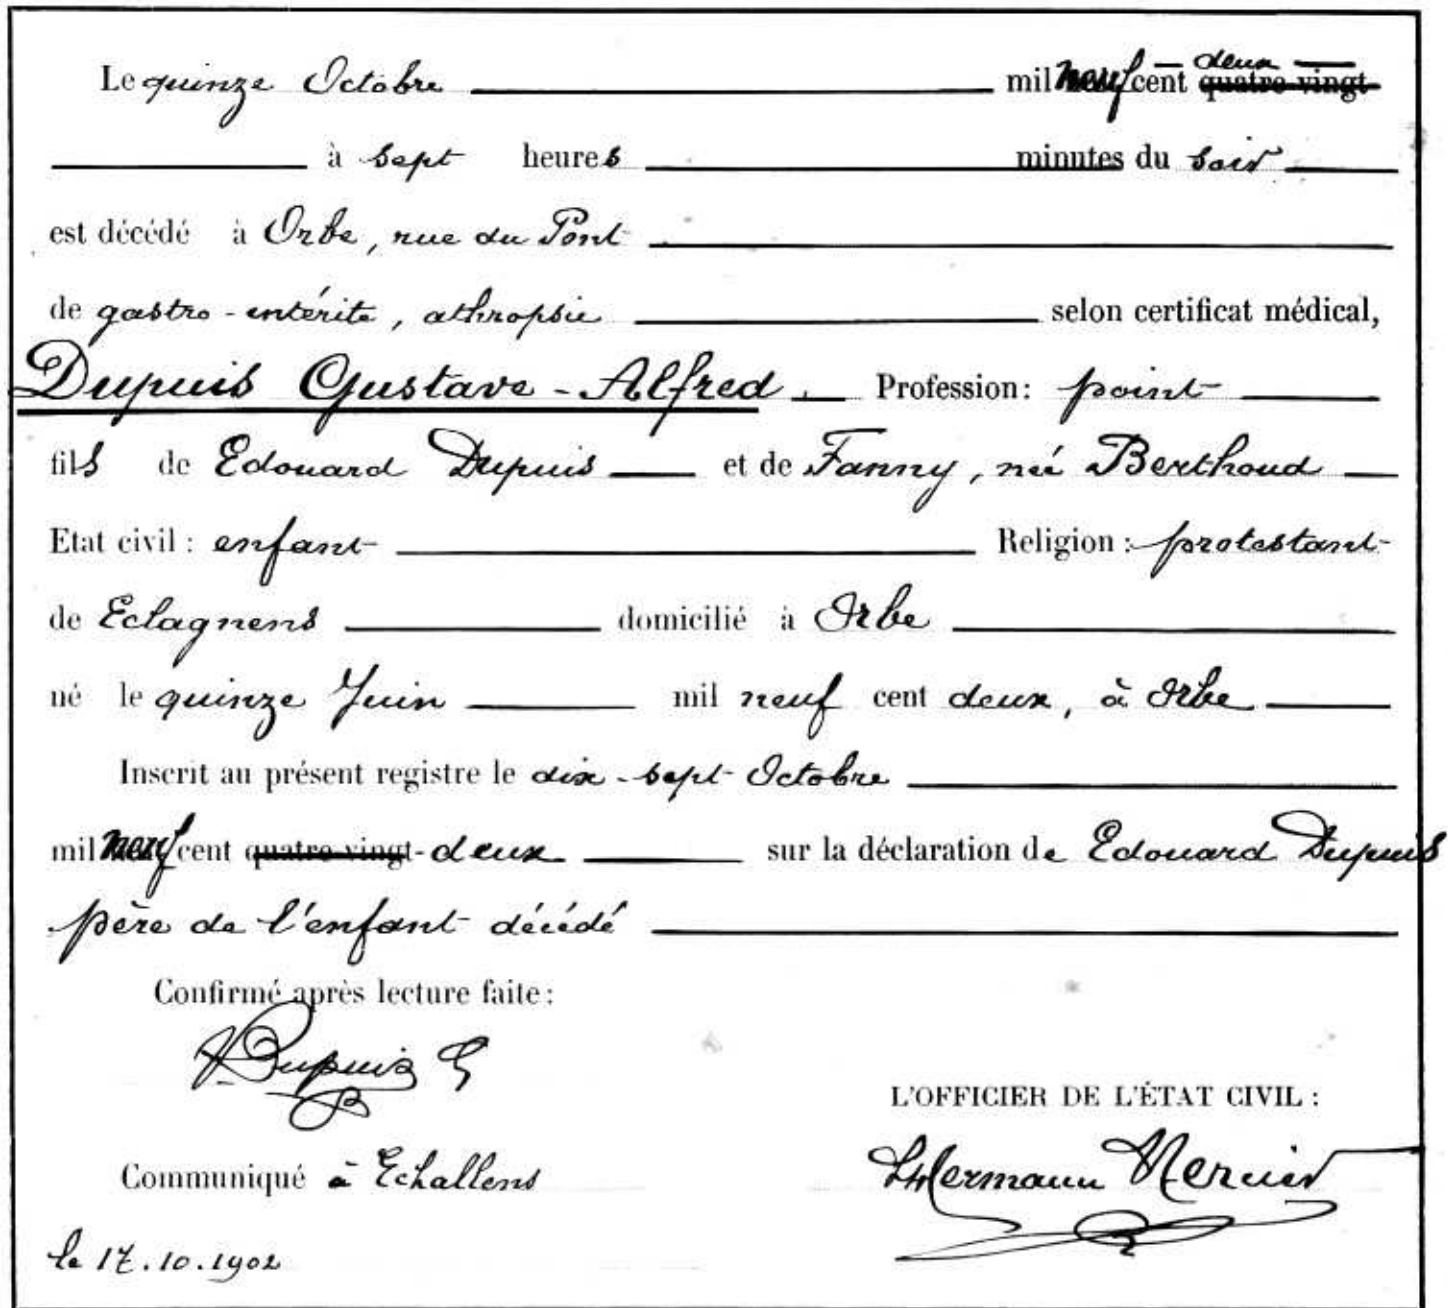 Le quinze Octobre mil neuf cent deux quatre-vingt
à sept heures minutes du soir
est décédé à Orbe, rue du Pont
de gastro-entérite, athropsie selon certificat médical,
Dupuis Gustave-Alfred Profession: point
fils de Edouard Dupuis et de Fanny, née Berthoud
Etat civil : enfant Religion : protestant
de Eclagnens domicilié à Orbe
né le quinze Juin mil neuf cent deux, à Orbe
Inscrit au présent registre le dix-sept Octobre
mil neuf cent quatre-vingt-deux sur la déclaration de Edouard Dupuis
père de l'enfant décédé
Confirmé après lecture faite :
Dupuis E
L'OFFICIER DE L'ÉTAT CIVIL :
Communiqué à Echallens
Hermann Mercier
le 17.10.1902